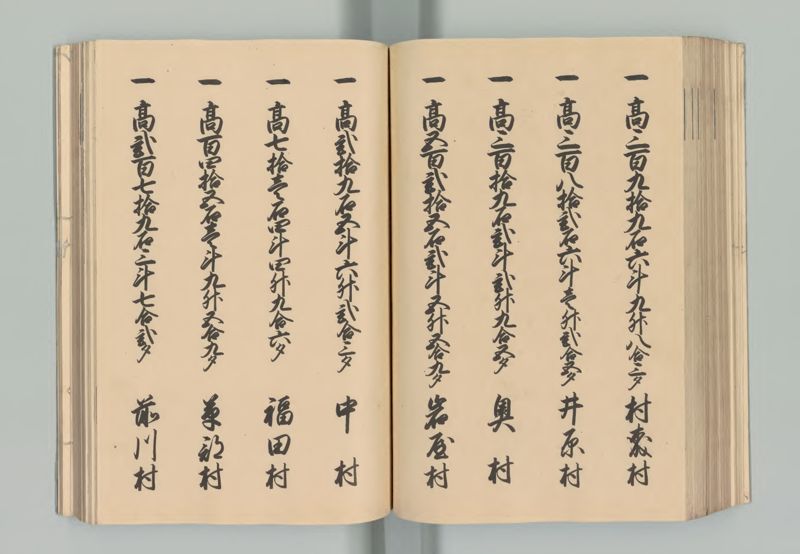 一 高三百九拾九石六斗九升八合三夕 村東村
一 高三百八拾弐石六斗壱升弐合五夕 井原村
一 高三百拾九石弐斗弐升九合五夕 奥村
一 高五百弐拾五石弐斗五升五合九夕 岩屋村
一 高弐拾九石五斗六升弐合三夕 中村
一 高七拾壱石四斗四升九合六夕 福田村
一 高百四拾五石壱斗九升五合九夕 村
一 高弐百七拾九石三斗七合弐夕 前川村